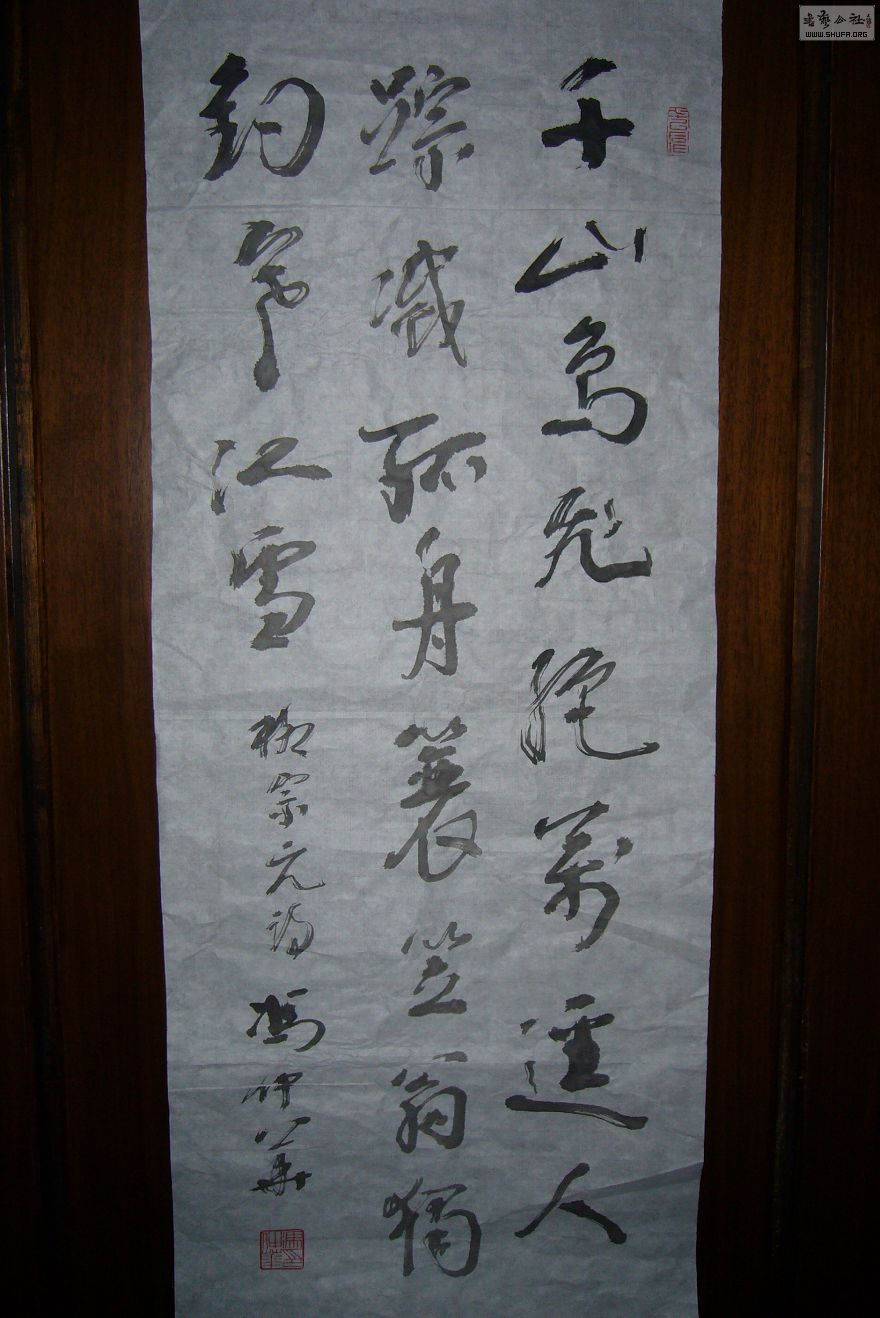 千山鳥飛絕萬逕人
踪滅孤舟簑笠翁獨
釣寒江雪 柳宗元詩 馮仲華
書藝公社
WWW.SHUFA.ORG